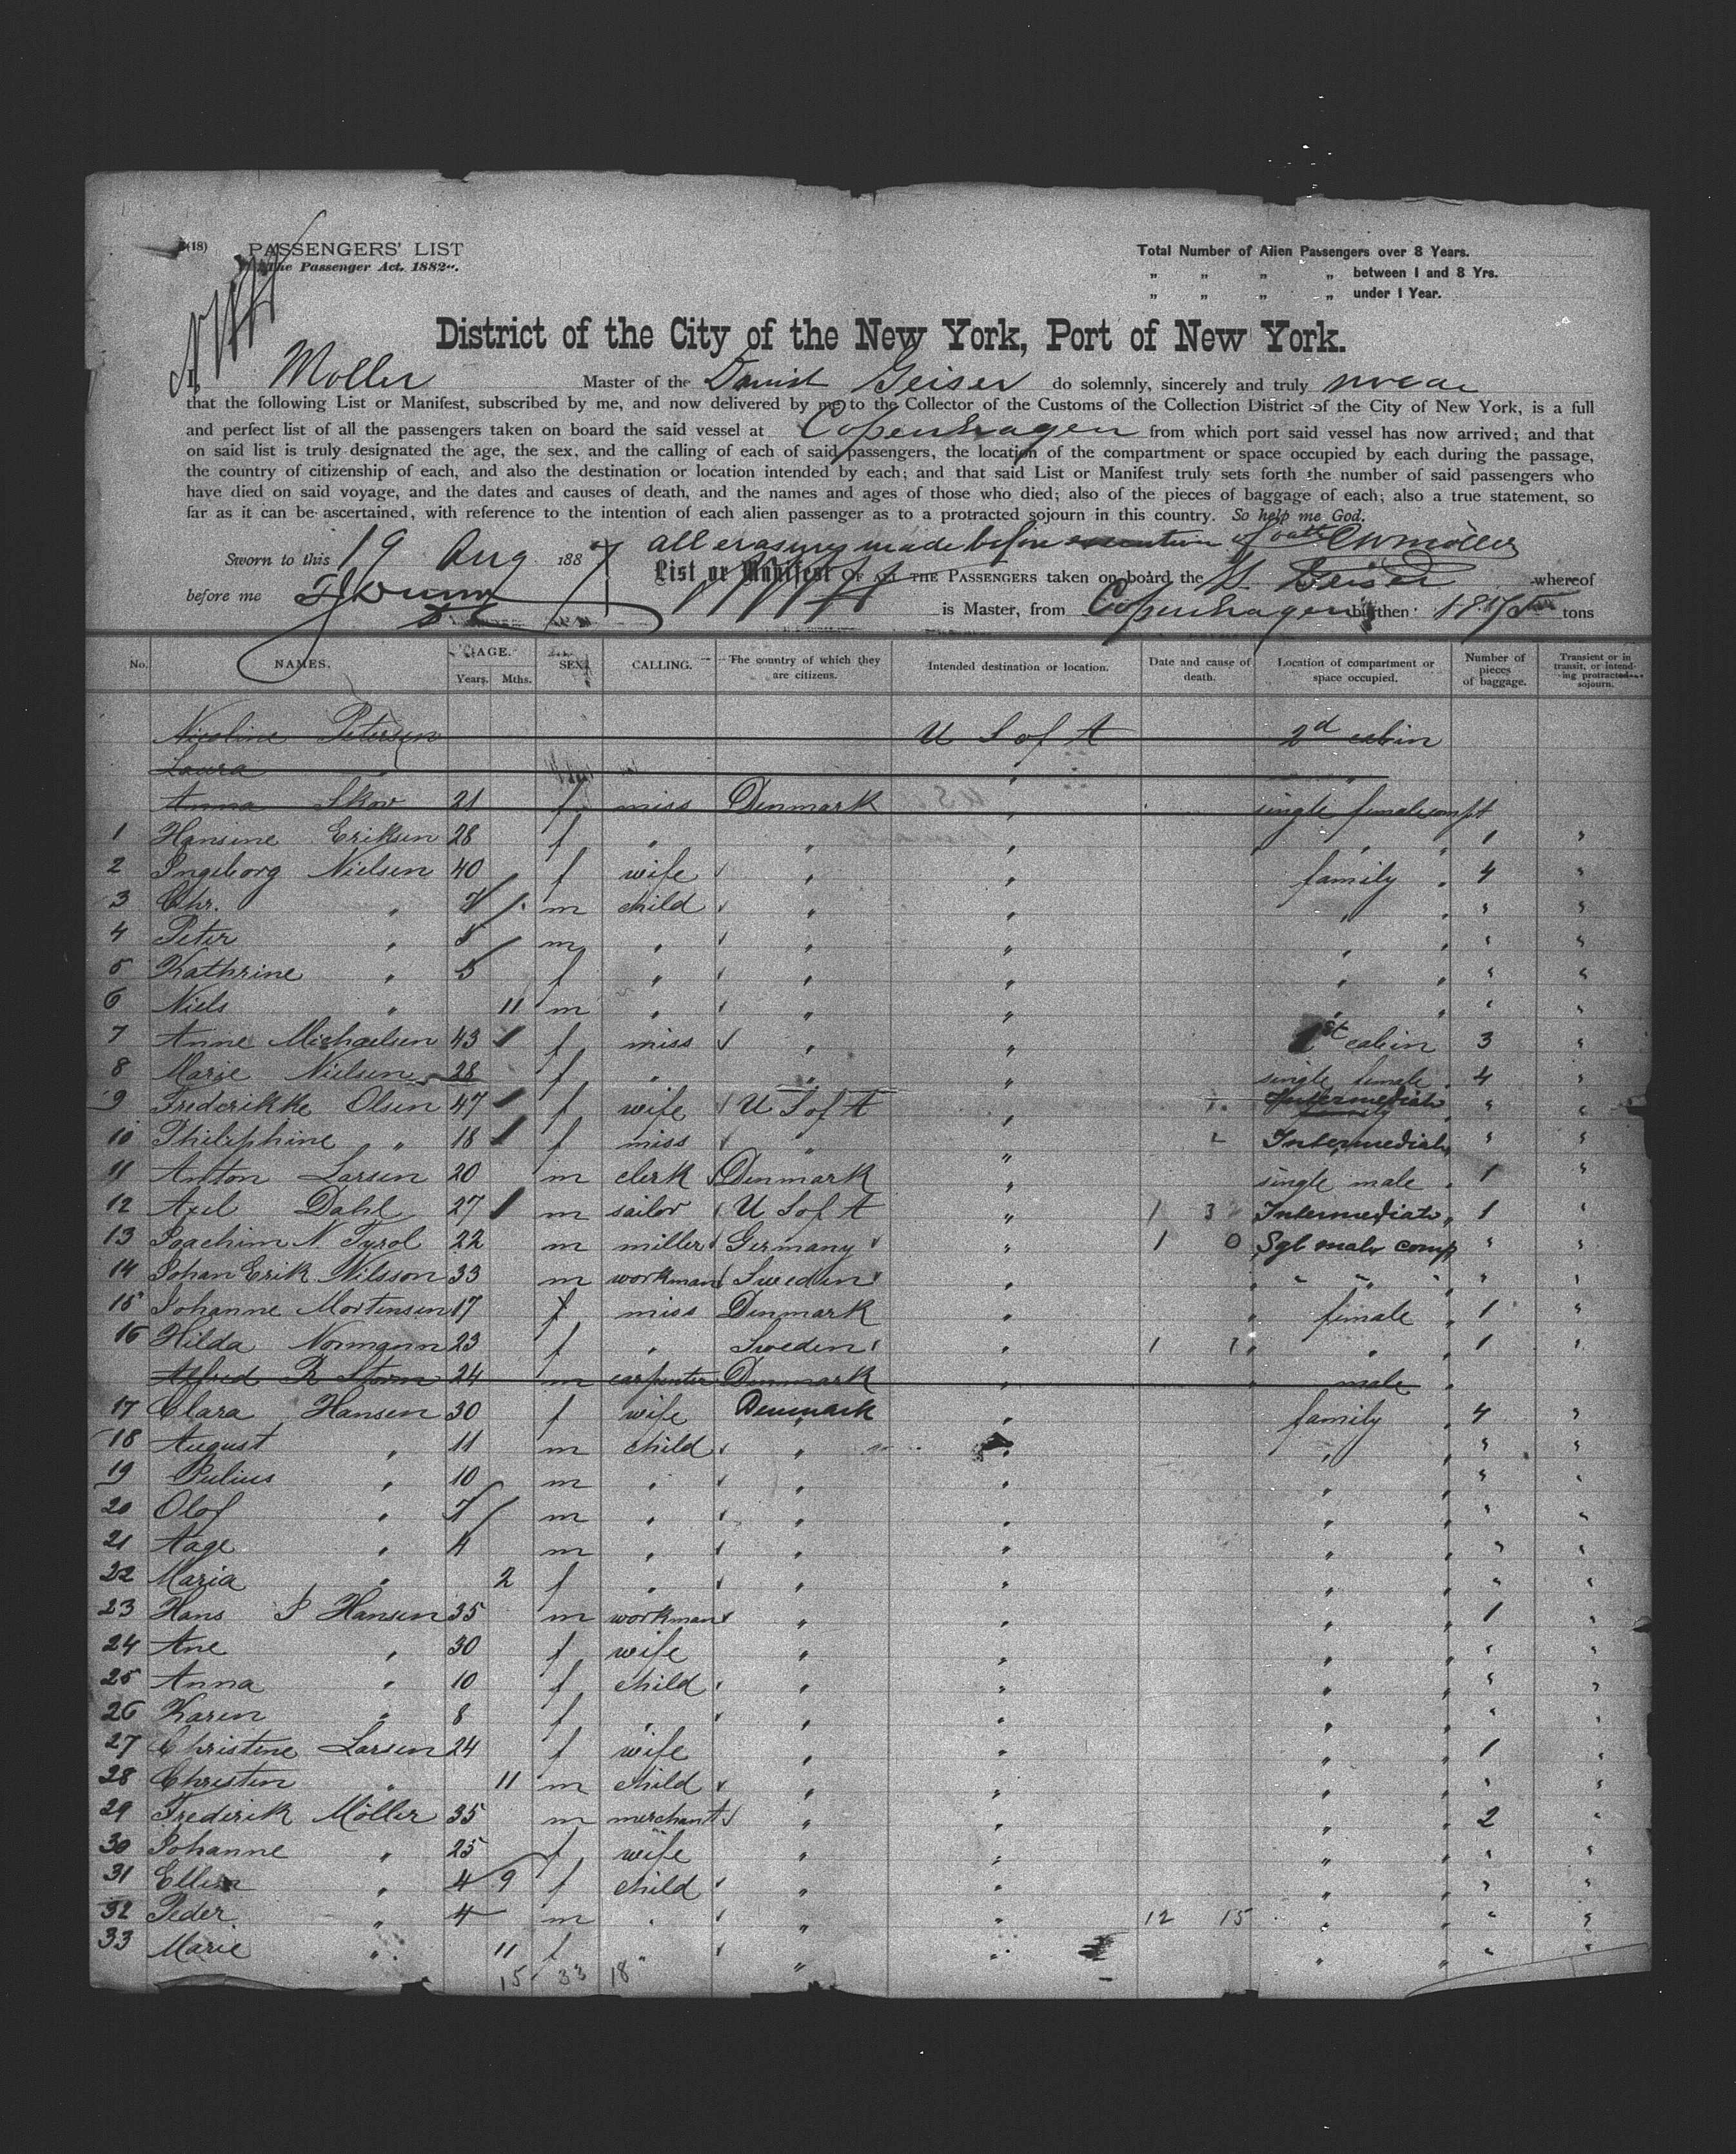 (18) PASSENGERS' LIST
The Passenger Act, 1882
Total Number of Alien Passengers over 8 Years.
„ „ „ „ between 1 and 8 Yrs.
„ „ „ „ under 1 Year.
District of the City of the New York, Port of New York.
I, Moller Master of the Danish Geiser do solemnly, sincerely and truly swear
that the following List or Manifest, subscribed by me, and now delivered by me to the Collector of the Customs of the Collection District of the City of New York, is a full
and perfect list of all the passengers taken on board the said vessel at Copenhagen from which port said vessel has now arrived; and that
on said list is truly designated the age, the sex, and the calling of each of said passengers, the location of the compartment or space occupied by each during the passage,
the country of citizenship of each, and also the destination or location intended by each; and that said List or Manifest truly sets forth the number of said passengers who
have died on said voyage, and the dates and causes of death, and the names and ages of those who died; also of the pieces of baggage of each; also a true statement, so
far as it can be ascertained, with reference to the intention of each alien passenger as to a protracted sojourn in this country. So help me God.
all erasures made before execution of oath CWMöller
Sworn to this 19 Aug 1887
List or Manifest OF ALL THE PASSENGERS taken on board the S. Geiser whereof
before me
is Master, from Copenhagen burthen tons
No. NAMES. AGE. Years. Mths. SEX. CALLING. The country of which they are citizens. Intended destination or location. Date and cause of death. Location of compartment or space occupied. Number of pieces of baggage. Transient or in transit, or intending protracted sojourn.
Nicoline Petersen U S of A 2d cabin
Laura "
Anna Skov 21 f miss Denmark " single female compt
1 Hansine Eriksen 28 f " " " " " 1 "
2 Ingeborg Nielsen 40 f wife " " family " 4 "
3 Chr. " 7 m child " " " " " "
4 Peter " 5 m " " " " " " "
5 Kathrine " 3 f " " " " " " "
6 Niels " 11 m " " " " " "
7 Anne Michaelsen 43 f miss " " 1st cabin 3 "
8 Marie Nielsen 28 f " " " single female " 4 "
9 Frederikke Olsen 47 f wife U S of A " Intermediate " "
10 Philiphine " 18 f miss " " 2 Intermediate " "
11 Anton Larsen 20 m clerk Denmark " single male " 1 "
12 Axel Dahl 27 m sailor U S of A " 1 3 Intermediate " 1 "
13 Joachim N. Tyrol 22 m miller Germany " 1 0 Sgl male comp " "
14 Johan Erik Nilsson 33 m workman Sweden " " " " " " "
15 Johanne Mortensen 17 f miss Denmark " " female " 1 "
16 Hilda Normann 23 f " Sweden " 1 1 " " " 1 "
Alfred R Storm 24 m carpenter Denmark " " male "
17 Clara Hansen 30 f wife Denmark " family " 4 "
18 August " 11 m child " " " " " "
19 Julius " 10 m " " " " " "
20 Olof " 7 m " " " " " " "
21 Aage " 4 m " " " " " " "
22 Maria " 2 f " " " " " " "
23 Hans P Hansen 35 m workman " " " " 1 "
24 Ane " 30 f wife " " " " " "
25 Anna " 10 f child " " " " " "
26 Karen " 8 f " " " " " " "
27 Christine Larsen 24 f wife " " " " 1 "
28 Christen " 11 m child " " " " " "
29 Frederik Möller 35 m merchant " " " " 2 "
30 Johanne " 25 f wife " " " " " "
31 Ellen " 4 9 f child " " " " " "
32 Peder " 4 m " " " 12 15 " " " "
33 Marie " 11 f " " " " " " "
15 33 18